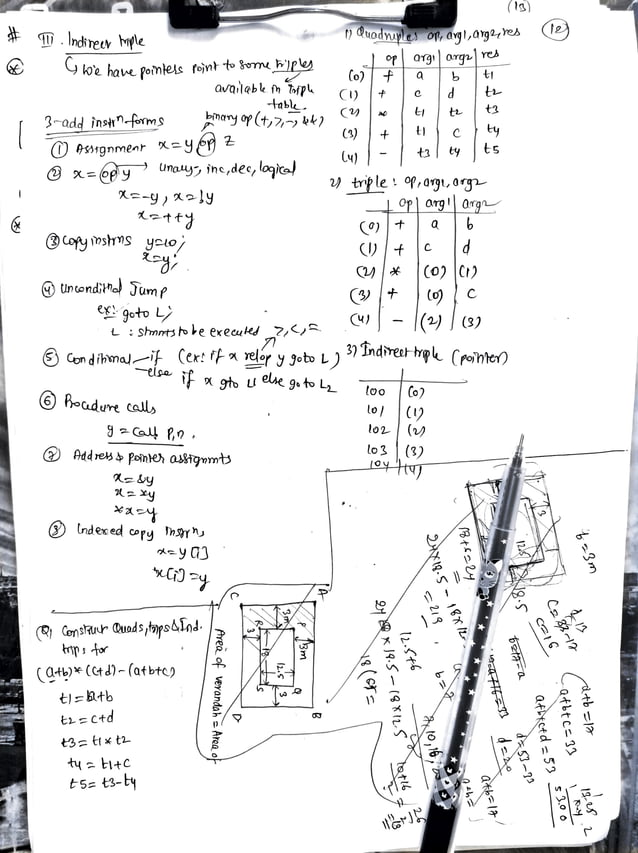 (13)
(12)
III. Indirect triple
↳ we have pointers point to some triples
available in triple
table.
3-add instrn forms
binary op (+, >, -, &&)
① Assignment x = y op z
② x = op y → unary, inc, dec, logical
x = -y, x = !y
x = ++y
③ Copy instrns y = 10;
x = y;
④ unconditnal Jump
ex: goto L;
L : stmnts to be executed
>, <, =
⑤ Conditional - if (ex: if x relop y goto L)
else if x gto L1 else goto L2
⑥ Procedure calls
y = call P, n.
⑦ Address & pointer assignmts
x = &y
x = *y
*x = y
⑧ Indexed copy instrns
x = y[i]
x[i] = y
Q) Construct Quads, trips & Ind.
trips for
(a+b)*(c+d)-(a+b+c)
t1 = a+b
t2 = c+d
t3 = t1*t2
t4 = t1+c
t5 = t3-t4
1) Quadruples op, arg1, arg2, res
op arg1 arg2 res
(0) + a b t1
(1) + c d t2
(2) * t1 t2 t3
(3) + t1 c t4
(4) - t3 t4 t5
2) triple: op, arg1, arg2
op arg1 arg2
(0) + a b
(1) + c d
(2) * (0) (1)
(3) + (0) c
(4) - (2) (3)
3) Indirect triple (pointer)
100 (0)
101 (1)
102 (2)
103 (3)
104 (4)
C A
3m
R P
3 3m
18
12.5
S Q
3
D B
Area of verandah = Area of
3
12.5
b = 3m
18+6=24
24×18.5 - 18×12
= 219
12.5+6
18.5 - 18×12.5
c = 16
a+b=17
a+b+c=33
a+b+c+d=53
d=53-33
d=20
a+b=17
13.25
53.00